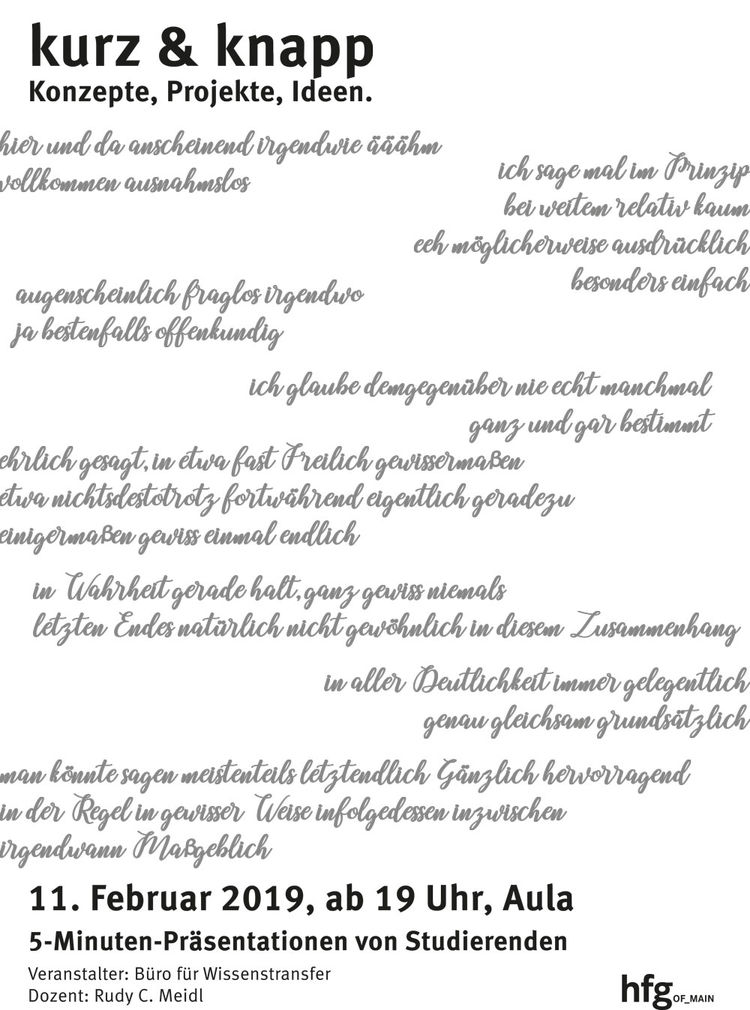 kurz & knapp
Konzepte, Projekte, Ideen.
hier und da anscheinend irgendwie ääähm
vollkommen ausnahmslos
ich sage mal im Prinzip
bei weitem relativ kaum
eeh möglicherweise ausdrücklich
besonders einfach
augenscheinlich fraglos irgendwo
ja bestenfalls offenkundig
ich glaube demgegenüber nie echt manchmal
ganz und gar bestimmt
ehrlich gesagt, in etwa fast Freilich gewissermaßen
etwa nichtsdestotrotz fortwährend eigentlich geradezu
einigermaßen gewiss einmal endlich
in Wahrheit gerade halt, ganz gewiss niemals
letzten Endes natürlich nicht gewöhnlich in diesem Zusammenhang
in aller Deutlichkeit immer gelegentlich
genau gleichsam grundsätzlich
man könnte sagen meistenteils letztendlich Gänzlich hervorragend
in der Regel in gewisser Weise infolgedessen inzwischen
irgendwann Maßgeblich
11. Februar 2019, ab 19 Uhr, Aula
5-Minuten-Präsentationen von Studierenden
Veranstalter: Büro für Wissenstransfer
Dozent: Rudy C. Meidl
hfg OF_MAIN